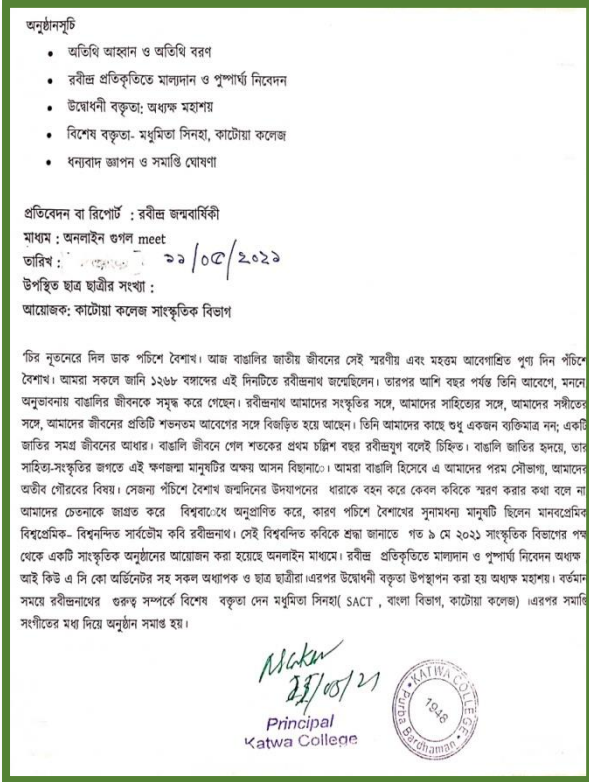 অনুষ্ঠানসূচি
• অতিথি আহ্বান ও অতিথি বরণ
• রবীন্দ্র প্রতিকৃতিতে মাল্যদান ও পুষ্পার্ঘ্য নিবেদন
• উদ্বোধনী বক্তৃতা: অধ্যক্ষ মহাশয়
• বিশেষ বক্তৃতা- মধুমিতা সিনহা, কাটোয়া কলেজ
• ধন্যবাদ জ্ঞাপন ও সমাপ্তি ঘোষণা
প্রতিবেদন বা রিপোর্ট : রবীন্দ্র জন্মবার্ষিকী
মাধ্যম : অনলাইন গুগল meet
তারিখ : ১১/০৫/২০২১
উপস্থিত ছাত্র ছাত্রীর সংখ্যা :
আয়োজক: কাটোয়া কলেজ সাংস্কৃতিক বিভাগ
'চির নূতনেরে দিল ডাক পচিশে বৈশাখ। আজ বাঙালির জাতীয় জীবনের সেই স্মরণীয় এবং মহত্তম আবেগাশ্রিত পুণ্য দিন পঁচিশে
বৈশাখ। আমরা সকলে জানি ১২৬৮ বঙ্গাব্দের এই দিনটিতে রবীন্দ্রনাথ জন্মেছিলেন। তারপর আশি বছর পর্যন্ত তিনি আবেগে, মননে,
অনুভাবনায় বাঙালির জীবনকে সমৃদ্ধ করে গেছেন। রবীন্দ্রনাথ আমাদের সংস্কৃতির সঙ্গে, আমাদের সাহিত্যের সঙ্গে, আমাদের সঙ্গীতের
সঙ্গে, আমাদের জীবনের প্রতিটি শভনতম আবেগের সঙ্গে বিজড়িত হয়ে আছেন। তিনি আমাদের কাছে শুধু একজন ব্যক্তিমাত্র নন; একটি
জাতির সমগ্র জীবনের আধার। বাঙালি জীবনে গেল শতকের প্রথম চল্লিশ বছর রবীন্দ্রযুগ বলেই চিহ্নিত। বাঙালি জাতির হৃদয়ে, তার
সাহিত্য-সংস্কৃতির জগতে এই ক্ষণজন্মা মানুষটির অক্ষয় আসন বিছানাো। আমরা বাঙালি হিসেবে এ আমাদের পরম সৌভাগ্য, আমাদের
অতীব গৌরবের বিষয়। সেজন্য পঁচিশে বৈশাখ জন্মদিনের উদযাপনের ধারাকে বহন করে কেবল কবিকে স্মরণ করার কথা বলে না
আমাদের চেতনাকে জাগ্রত করে বিশ্ববাোধে অনুপ্রাণিত করে, কারণ পচিশে বৈশাখের সুনামধন্য মানুষটি ছিলেন মানবপ্রেমিক
বিশ্বপ্রেমিক- বিশ্বনন্দিত সার্বভৌম কবি রবীন্দ্রনাথ। সেই বিশ্ববন্দিত কবিকে শ্রদ্ধা জানাতে গত ৯ মে ২০২১ সাংস্কৃতিক বিভাগের পক্ষ
থেকে একটি সাংস্কৃতিক অনুষ্ঠানের আয়োজন করা হয়েছে অনলাইন মাধ্যমে। রবীন্দ্র প্রতিকৃতিতে মাল্যদান ও পুষ্পার্ঘ্য নিবেদন অধ্যক্ষ
আই কিউ এ সি কো অর্ডিনেটর সহ সকল অধ্যাপক ও ছাত্র ছাত্রীরা।এরপর উদ্বোধনী বক্তৃতা উপস্থাপন করা হয় অধ্যক্ষ মহাশয়। বর্তমান
সময়ে রবীন্দ্রনাথের গুরুত্ব সম্পর্কে বিশেষ বক্তৃতা দেন মধুমিতা সিনহা( SACT , বাংলা বিভাগ, কাটোয়া কলেজ) ।এরপর সমাপ্তি
সংগীতের মধ্য দিয়ে অনুষ্ঠান সমাপ্ত হয়।
Principal
Katwa College
KATWA COLLEGE
1948
Purba Bardhaman